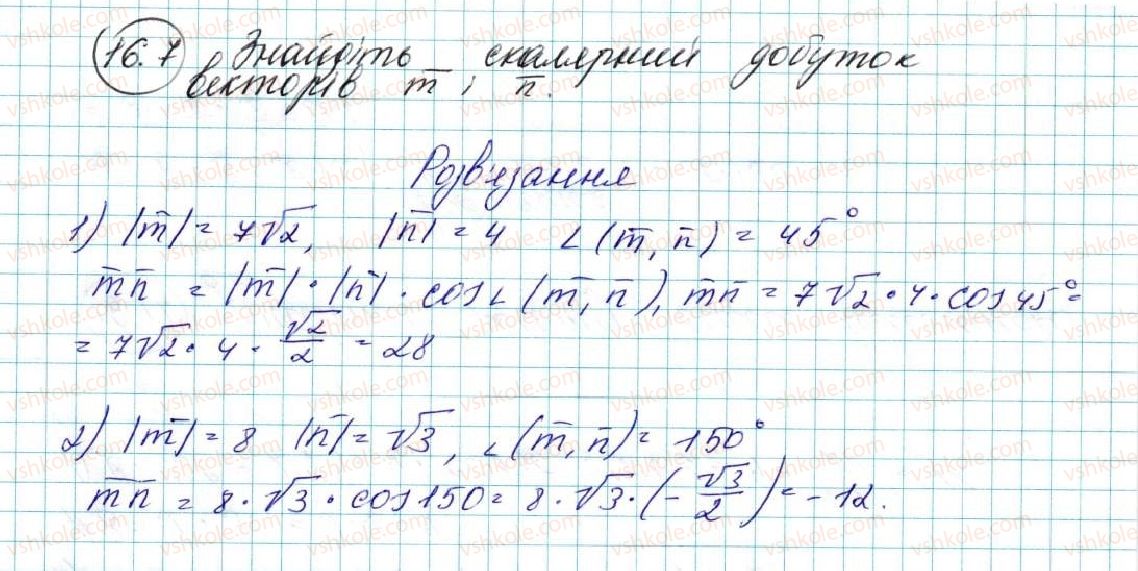 16.7 Знайдіть скалярний добуток
векторів m̅ і n̅.
Розв'язання
1) |m̅| = 7√2, |n̅| = 4 ∠(m̅, n̅) = 45°
m̅n̅ = |m̅| · |n̅| · cos∠(m̅, n̅), m̅n̅ = 7√2 · 4 · cos45° =
= 7√2 · 4 · √2/2 = 28
2) |m̅| = 8 |n̅| = √3, ∠(m̅, n̅) = 150°
m̅n̅ = 8 · √3 · cos150 = 8 · √3 · (-√3/2) = -12.